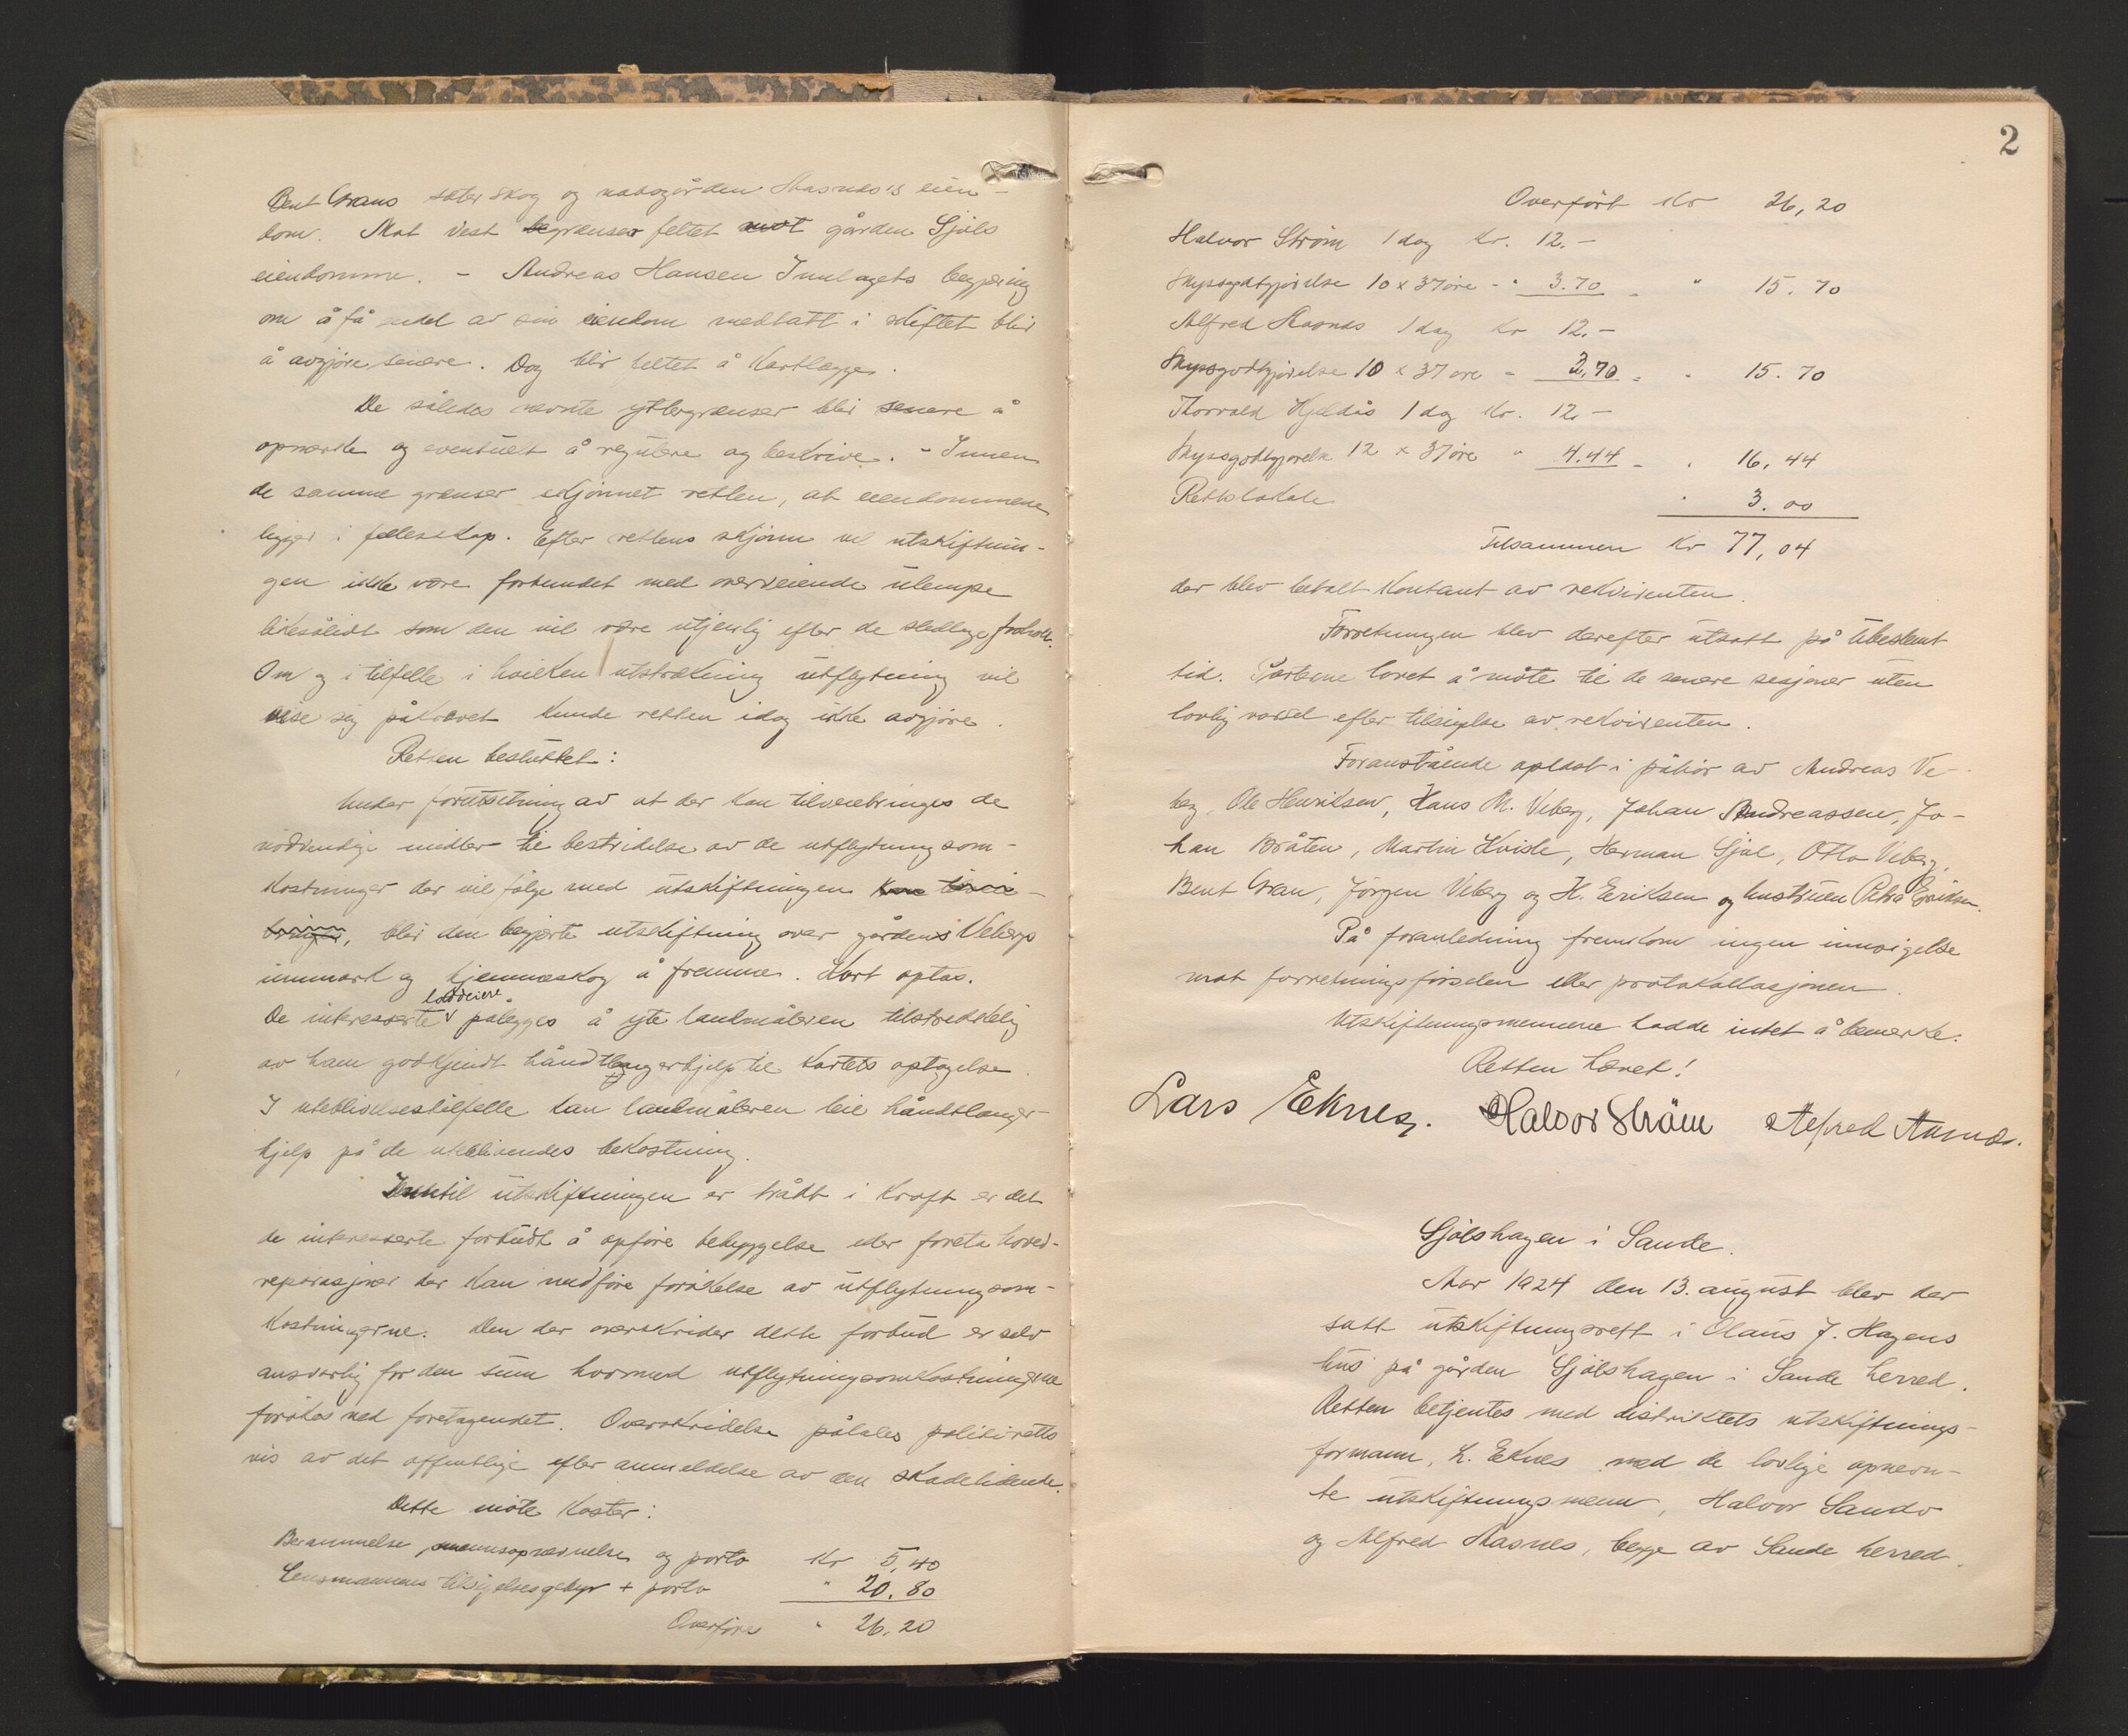 Bent Grans sæterskog og nabogården Aasnæs's eien-
dom. Mot vest begrænser feltet mot gården Sjøls
eiendomme. - Andreas Hansen Innlagets begjæring
om å få endel av sin eiendom medtatt i skiftet blir
å avgjøre senere. Dog blir feltet å kartlegge.
De således nævnte yttergrænser blir senere å
opmerke og eventuelt å regulere og beskrive. - Innen
de samme grænser skjønnet retten, at eiendommene
ligger i fellesskap. Efter rettens skjønn vil utskiftnin-
gen ikke være forbundet med overveiende ulempe
likesålidt som den vil være utjenlig efter de stedlige forhold.
Om og i tilfelle i hvilken utstrækning utflytning vil
vise sig påkrævet kunde retten idag ikke avgjøre.
Retten besluttet:
Under forutsetning av at der kan tilveiebringes de
nødvendige midler til bestridelse av de utflytningsom-
kostninger der vil følge med utskiftningen kan tilveie-
bringes, blir den begjærte utskiftning over gårdens Vebergs
innmark og hjemmeskog å fremme. Kart optas.
De interesserte loddeiere pålegges å yte landmåleren tilstrekkelig
av ham godkjendt håndtlangerhjelp til kartets optagelse.
I uteblivelsestilfelle kan landmåleren leie håndtlanger-
hjelp på de uteblivendes bekostning.
Inntil utskiftningen er trådt i kraft er det
de interesserte forbudt å opføre bebyggelse eller foreta hoved-
reparasjoner der kan medføre forøkelse av utflytningsom-
kostningerne. Den der overskrider dette forbud er selv
ansvarlig for den sum hvormed utflytningsomkostningerne
forøkes ved foretagendet. Overskridelse påtales politiretts
vis av det offentlige efter anmeldelse av den skadelidende.
Dette møte koster:
Berammelse, mannsopnævnelse og porto Kr 5,40
Lensmannens tilsigelsesgebyr + porto " 20.80
Overføre " 26.20
2
Overført Kr 26,20
Halvor Strøm 1 dag Kr. 12.-
Skyssgodtgjørelse 10 x 37 øre - " 3.70 - " 15.70
Alfred Aasnes 1 dag Kr 12.-
Skyssgodtgjørelse 10 x 37 øre - 3.70 - " 15.70
Thorvald Kjeldås 1 dag Kr. 12.-
Skyssgodtgjørelse 12 x 37 øre " 4.44 - " 16,44
Rettslokale " 3.00
Tilsammen Kr 77,04
der blev betalt kontant av rekvirenten.
Forretningen blev derefter utsatt på ubestemt
tid. Parterne lovet å møte til de senere sesjoner uten
lovlig varsel efter tilsigelse av rekvirenten.
Foranstående oplæst i påhør av Andreas Ve-
berg, Ole Henriksen, Hans M. Veberg, Johan Andreassen, Jo-
han Bråten, Martin Kvisle, Herman Sjøl, Otto Veberg,
Bent Gran, Jørgen Veberg og H. Eriksen og hustruen Petra Eriksen.
På foranledning fremkom ingen innsigelse
mot forretningsførselen eller protokollasjonen.
Utskiftningsmennene hadde intet å bemerke.
Retten hævet!
Lars Eknes. Halvor Strøm Alfred Aasnes.
Sjølshagen i Sande.
Aar 1924 den 13. august blev der
satt utskiftningsrett i Olaus J. Hagens
hus på gården Sjølshagen i Sande herred.
Retten betjentes med distriktets utskiftnings-
formann, L. Eknes med de lovlige opnevn-
te utskiftningsmenn, Halvor Sando
og Alfred Aasnes, begge av Sande herred.